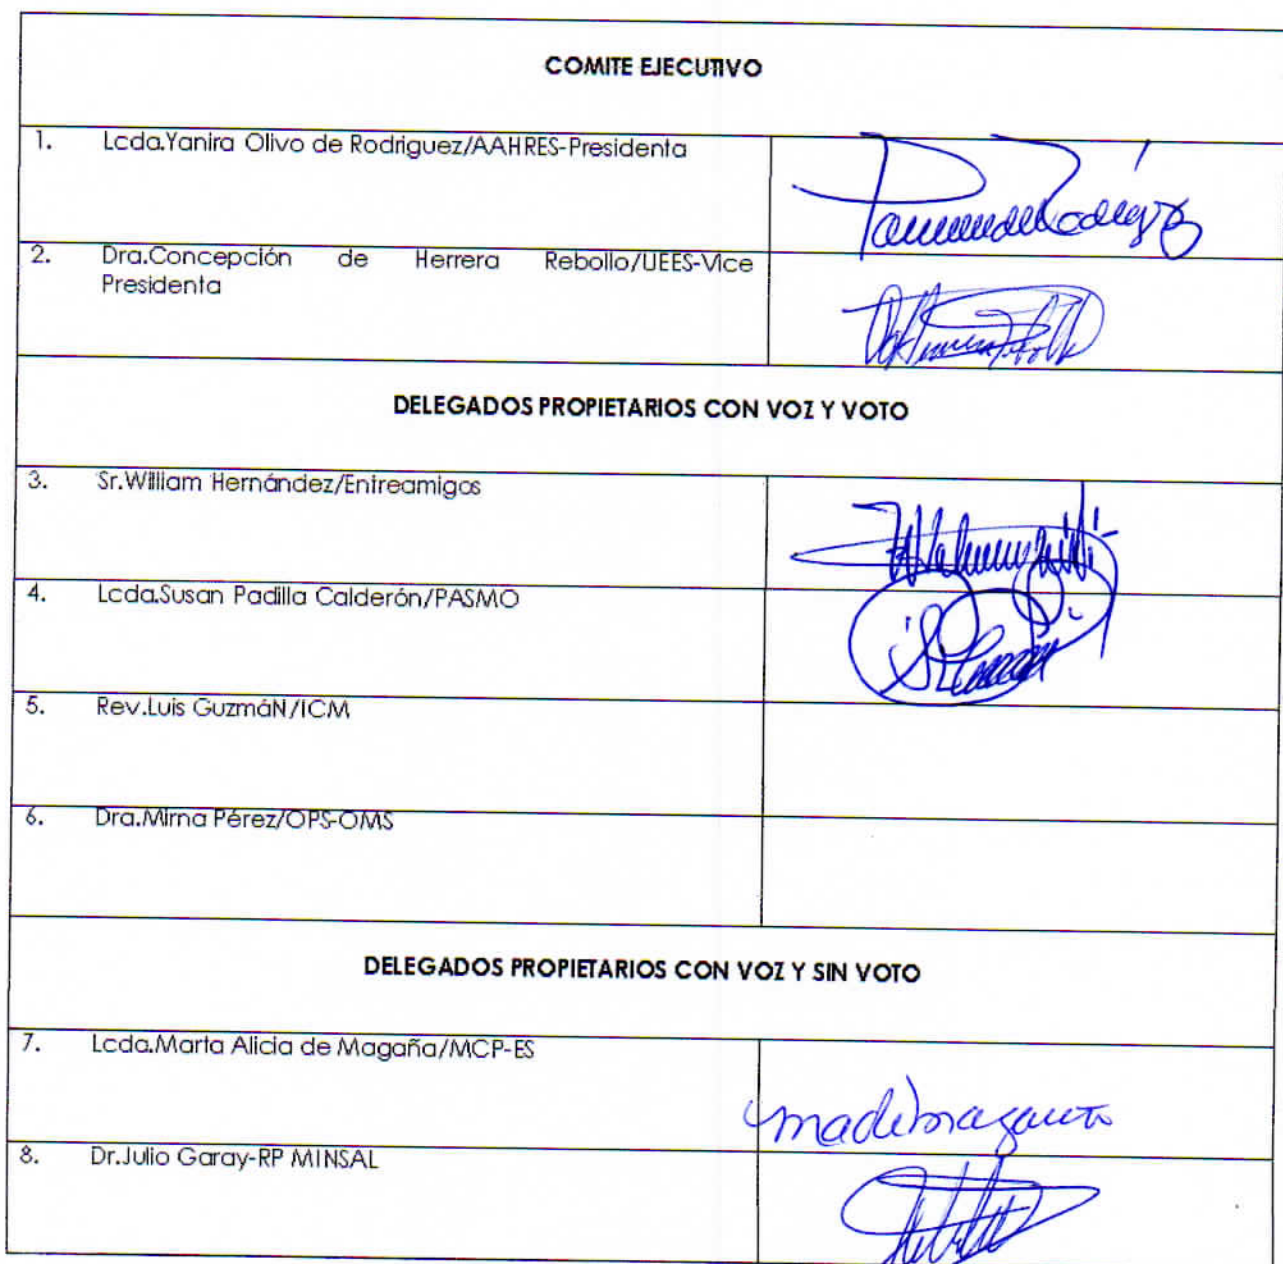 COMITE EJECUTIVO
1. Lcda.Yanira Olivo de Rodriguez/AAHRES-Presidenta
2. Dra.Concepción de Herrera Rebollo/UEES-Vice
Presidenta
DELEGADOS PROPIETARIOS CON VOZ Y VOTO
3. Sr.William Hernández/Entreamigos
4. Lcda.Susan Padilla Calderón/PASMO
5. Rev.Luis GuzmáN/ICM
6. Dra.Mirna Pérez/OPS-OMS
DELEGADOS PROPIETARIOS CON VOZ Y SIN VOTO
7. Lcda.Marta Alicia de Magaña/MCP-ES
8. Dr.Julio Garay-RP MINSAL